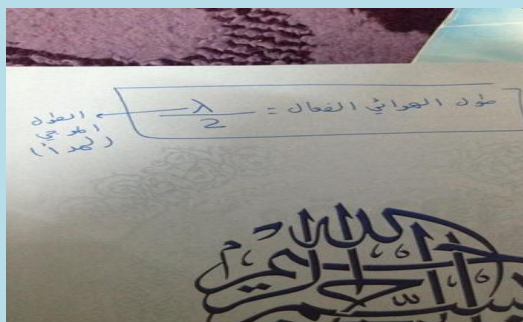 طول الهوائي الفعال = λ/2
الطول
الموجي
(لمدا)
بسم الله الرحمن الرحيم